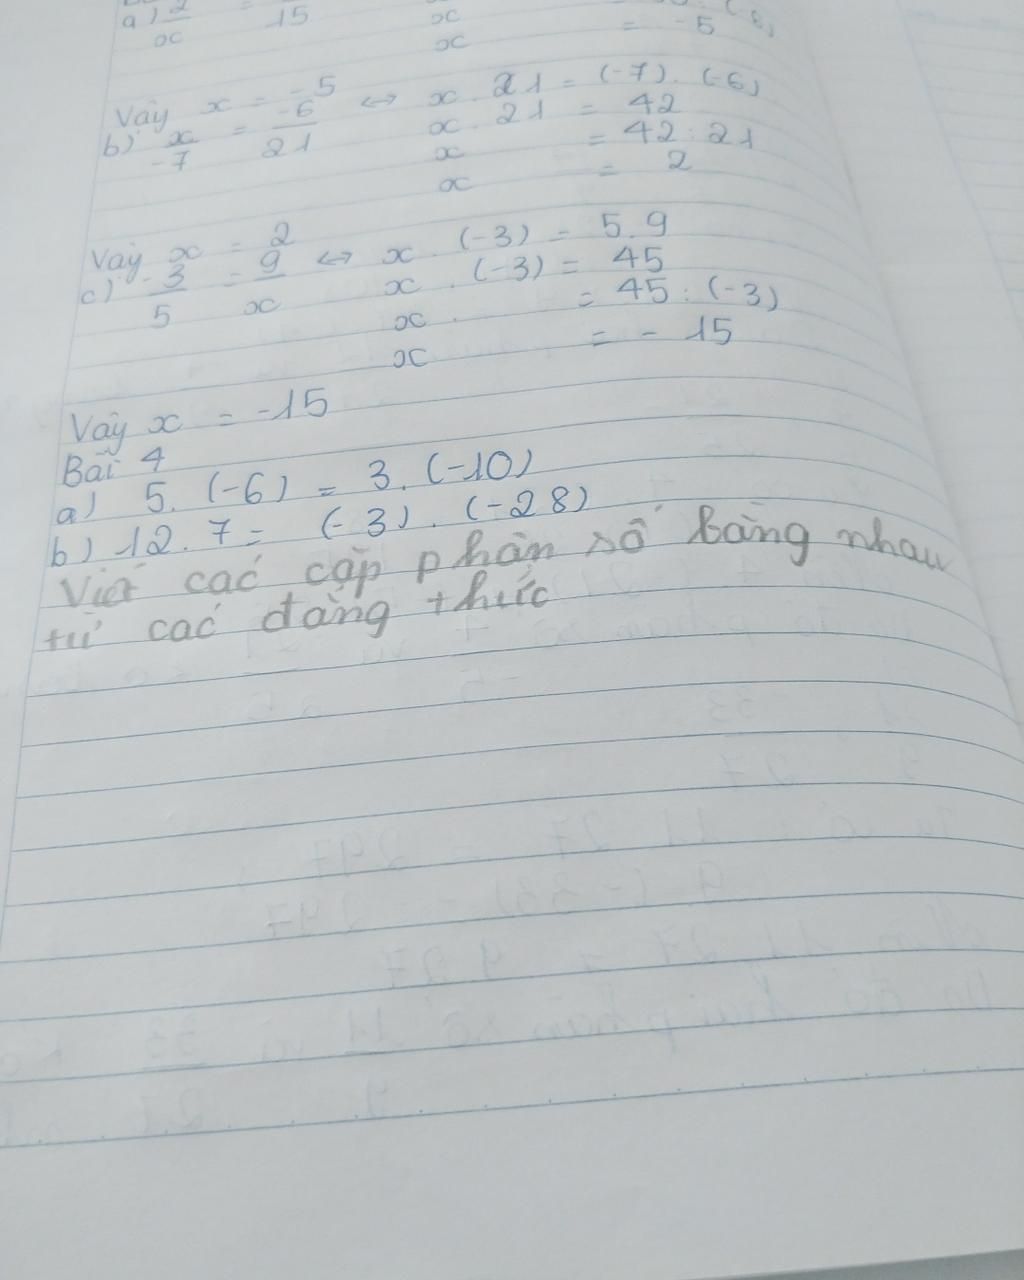 a) 2 =
x 15 x
x = -5
Vậy x = -5
b) x/-7 = -6/21 <-> x . 21 = (-7) . (-6)
x . 21 = 42
x = 42 : 21
x = 2
Vậy x = 2
c) -3/5 = 9/x <-> x . (-3) = 5 . 9
x . (-3) = 45
x . = 45 : (-3)
x = - 15
Vậy x = -15
Bài 4
a) 5. (-6) = 3. (-10)
b) 12. 7 = (-3) . (-28)
Viết các cặp phân số bằng nhau
từ các đẳng thức